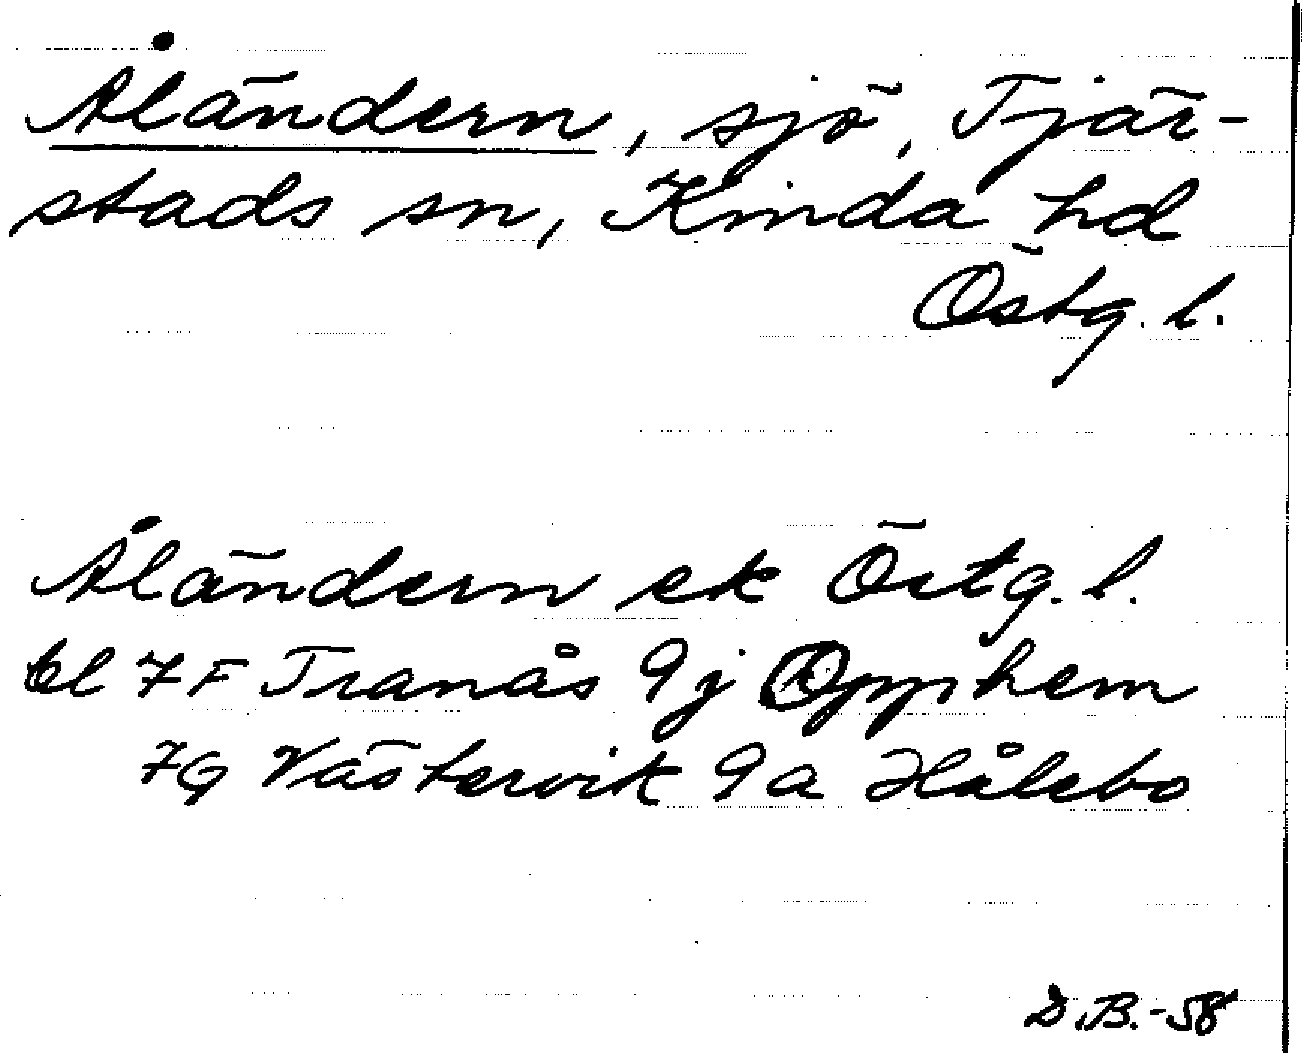 Åländern, sjö, Tjär-
stads sn, Kinda hd
Östg. l.
Åländern ek Östg. l.
bl 7F Tranås 9j Opphem
7G Västervik 9a Hålebo
D.B.-58